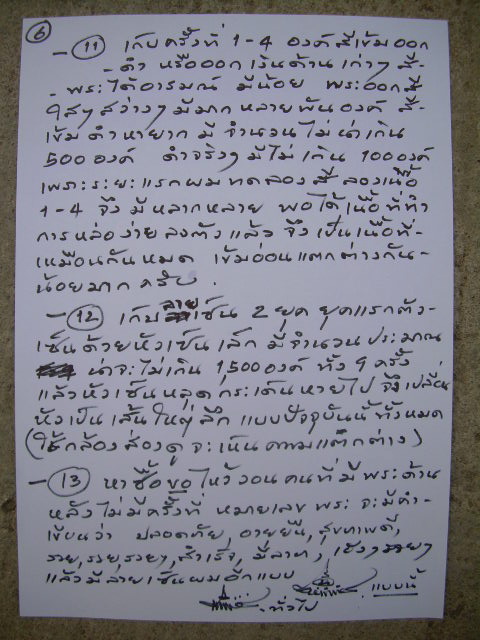 6
- 11 เก็บครั้งที่ 1-4 องค์สีเข้มออก
- ดำ หรือออกเงินด้านเก่าๆ สี-
- พระได้อารมณ์ มีน้อย พระออกสี
ใสๆ สว่างๆ มีมาก หลายพันองค์ สี-
เข้มดำหายาก มี จำนวนไม่น่าเกิน
500 องค์ ดำจริงๆ มีไม่เกิน 100 องค์
เพราะระยะแรกผมทดลองสี ลองเนื้อ
1-4 จึงมีหลากหลาย พอได้เนื้อที่ทำ
การหล่อง่ายลงตัวแล้ว จึงเป็นเนื้อที่-
เหมือนกันหมด เข้มอ่อนแตกต่างกัน-
น้อยมาก ครับ.
- 12 เก็บลายเซ็น 2 ยุค ยุคแรกตัว-
เซ็นด้วยหัวเซ็นเล็ก มีจำนวนประมาณ
น่าจะไม่เกิน 1,500 องค์ ทั้ง 9 ครั้ง
แล้วหัวเซ็นหลุดกระเด็นหายไป จึงเปลี่ยน
หัวเป็นเส้นใหญ่ลึก แบบปัจจุบันนี้ทั้งหมด
(ใช้กล้องส่องดู จะเห็นความแตกต่าง)
- 13 หาซื้อขอไหว้วอนคนที่มีพระด้าน
หลังไม่มีครั้งที่ หมายเลข พระ จะมีคำ-
เขียนว่า ปลอดภัย, อายุยืน, สุขภาพดี,
รวย, รวย, รวยๆ, สำเร็จ, มีลาภ, เฮงๆ รวยๆ
แล้วมีลายเซ็นผมอีกแบบ แบบนี้
ทั่วไป